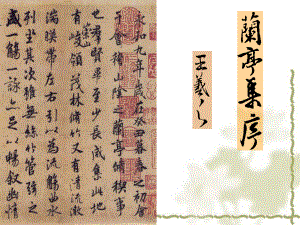 蘭亭集序
王羲之
永和九年歲在癸丑暮春之初會
于會稽山陰之蘭亭脩稧事
也羣賢畢至少長咸集此地
有崇山峻領茂林脩竹又有清流激
湍暎帶左右引以為流觴曲水
列坐其次雖無絲竹管弦之
盛一觴一詠亦足以暢敘幽情